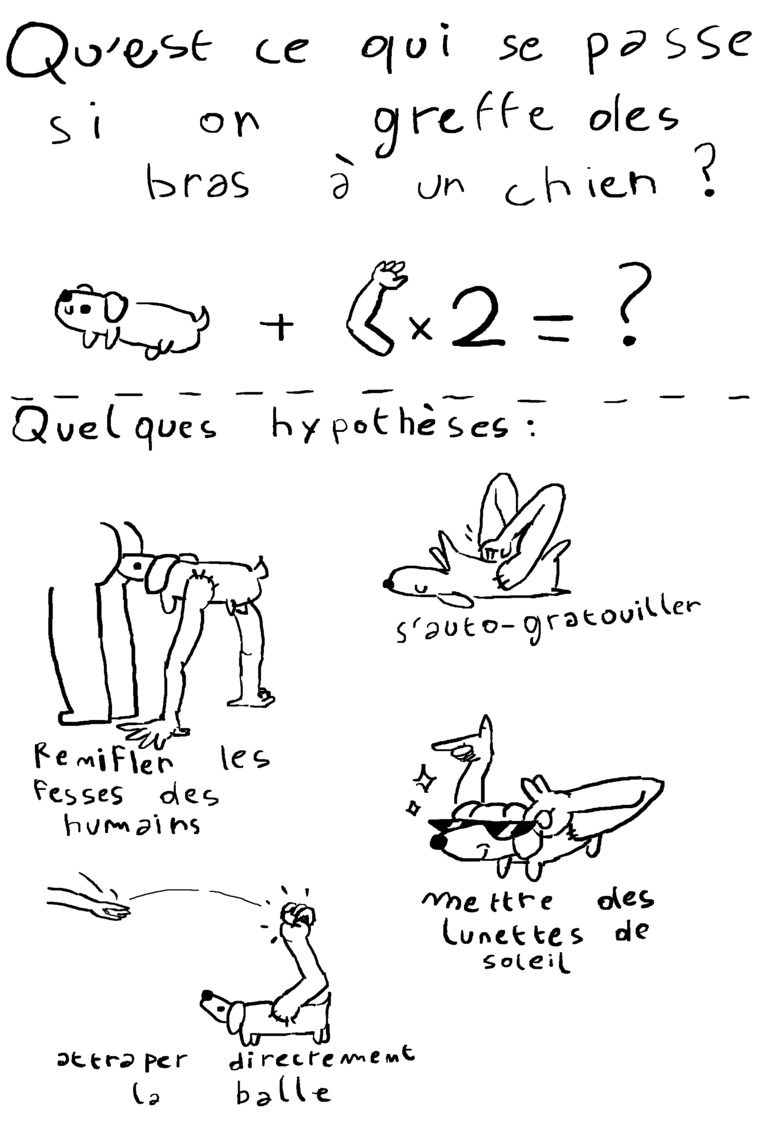 Qu'est ce qui se passe
si on greffe des
bras à un chien ?
+ x 2 = ?
Quelques hypothèses :
s'auto-gratouiller
Renifler les
fesses des
humains
mettre des
lunettes de
soleil
attraper directement
la balle